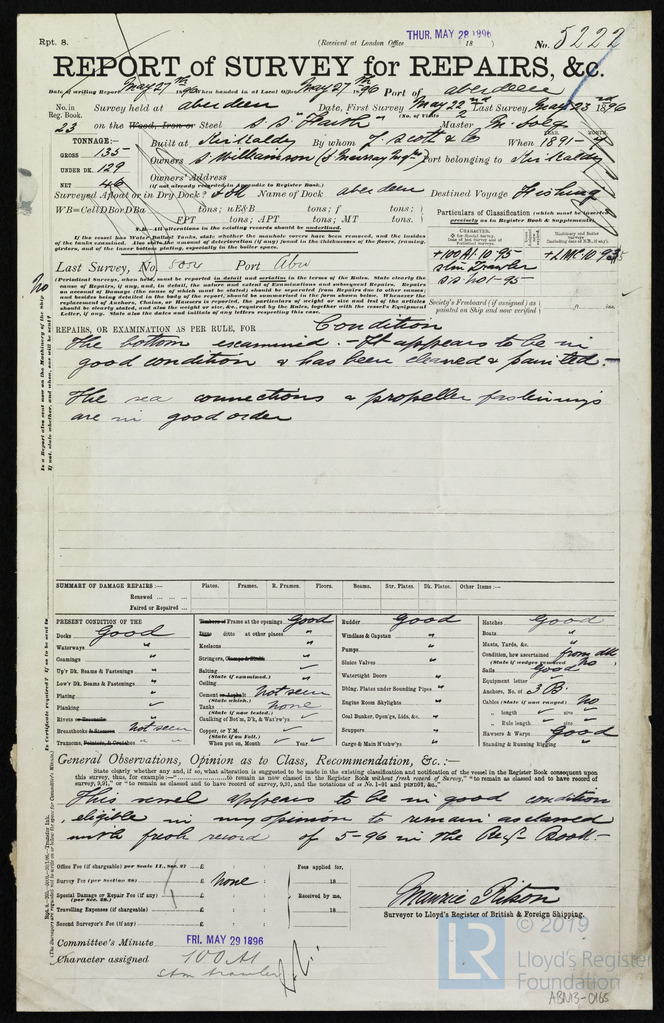 Rpt. 8.
(Received at London Office THUR. MAY 28 1896 18 ) No. 5222
REPORT of SURVEY for REPAIRS, &c.
Date of writing Report May 27th 1896 When handed in at Local Office May 27th 1896 Port of aberdeen
No. in Reg. Book. Survey held at aberdeen Date, First Survey May 22nd Last Survey May 23rd 1896
(No. of Visits 2
23 on the Wood, Iron or Steel S.S "Faith" Master
TONNAGE:— Built at Kirkcaldy By whom J. Scott & Co When 1891 -
YEAR. MONTH.
GROSS 135
Owners Port belonging to Kirkcaldy
UNDER DK. 129
Owners' Address
NET 46
(if not already recorded in Appendix to Register Book.)
Surveyed Afloat or in Dry Dock? Name of Dock aberdeen Destined Voyage Fishing
WB=CellDBorDBa tons; uE&B tons; f tons;
FPT tons; APT tons; MT tons.
Particulars of Classification (which must be inserted precisely as in Register Book & Supplements).
N.B.—All alterations in the existing records should be underlined.
If the vessel has Water Ballast Tanks, state whether the manhole covers have been removed, and the insides
of the tanks examined. Also state the amount of deterioration (if any) found in the thicknesses of the floors, framing,
girders, and of the inner bottom plating, especially in the boiler space.
+100A1 10.95
+LMC 10.95
Stm Trawler
S.S. No1-95
Last Survey, No. 5054 Port Abn
(Periodical Surveys, when held, must be reported in detail and seriatim in the terms of the Rules. State clearly the
cause of Repairs, if any, and, in detail, the nature and extent of Examinations and subsequent Repairs. Repairs
on account of Damage (the cause of which must be stated) should be separated from Repairs due to other causes;
and besides being detailed in the body of the report, should be summarised in the form shown below. Whenever the
replacement of Anchors, Chains, or Hawsers is reported, the particulars of weight or size and test of the articles
should be clearly stated, and also the weight or size, &c., required by the Rules, together with the vessel's Equipment
Letter, if any. State also the dates and initials of any letters respecting this case.
Society's Freeboard (if assigned) as painted on Ship and now verified } ft. ins.
REPAIRS, OR EXAMINATION AS PER RULE, FOR Condition
The bottom examined. - It appears to be in
good condition & has been cleaned & painted. -
The sea connections & propeller fastenings
are in good order
Is a Report also sent now on the Machinery of the Ship no
If not, state whether, and when, one will be sent?
SUMMARY OF DAMAGE REPAIRS:— Plates. Frames. R. Frames. Floors. Beams. Str. Plates. Dk. Plates. Other Items:—
Renewed ... ...
Faired or Repaired ...
PRESENT CONDITION OF THE
Decks Good
Waterways "
Coamings "
Up'r Dk. Beams & Fastenings "
Low'r Dk. Beams & Fastenings "
Plating "
Planking ✓
Rivets or Reconcile "
Breasthooks & Stemson not seen
Transoms, Pointers, & Crutches " "
Timbers of Frame at the openings Good
Ditto ditto at other places "
Keelsons "
Stringers, Clamps & Shelfs "
Salting ✓
(State if examined.)
Ceiling ✓
Cement or Asphalt not seen
(State which.)
Tanks none
(State if now tested.)
Caulking of Bot'm, D'k, & Wat'rw'ys ✓
Copper, or Y.M. ✓
(State if on Felt.)
When put on, Month ✓ Year ✓
Rudder Good
Windlass & Capstan "
Pumps "
Sluice Valves "
Watertight Doors "
Dblng. Plates under Sounding Pipes "
Engine Room Skylights "
Coal Bunker, Open'gs, Lids, &c. "
Scuppers "
Cargo & Main H'tchw'ys "
Hatches Good
Boats "
Masts, Yards, &c. "
Condition, how ascertained from dk
(State if wedges removed) no
Sails Good
Equipment letter ✓
Anchors, No. of 3 B.
Cables (State if now ranged) no
" length ✓ size ✓
" Rule length ✓ size ✓
Hawsers & Warps Good
Standing & Running Rigging "
Is Certificate required? If so to be sent to
General Observations, Opinion as to Class, Recommendation, &c.:—
State clearly whether any and, if so, what alteration is suggested to be made in the existing classification and notification of the vessel in the Register Book consequent upon
this survey, thus, for example:—" to remain as now classed in the Register Book without fresh record of Survey," "to remain as classed and to have record of
survey, 9,91," or "to remain as classed and to have record of survey, 9,91, and the notations of ss No. 1-91 and PtND91, &c."
This vessel appears to be in good condition
, eligible in my opinion to remain as classed
with fresh record of 5-96 in the Reg. Book. -
Office Fee (if chargeable) per Scale II., Sec. 2) £
Survey Fee (per Section 28) £ none
Special Damage or Repair Fee (if any) £
(per Sec. 28.)
Travelling Expenses (if chargeable) £
Second Surveyor's Fee (if any) £
Fees applied for,
18
Received by me,
18
Surveyor to Lloyd's Register of British & Foreign Shipping.
Committee's Minute FRI. MAY 29 1896
Character assigned 100 A1
Stm Trawler
© 2019
LR
Lloyd's Register
Foundation
ABN13-0165